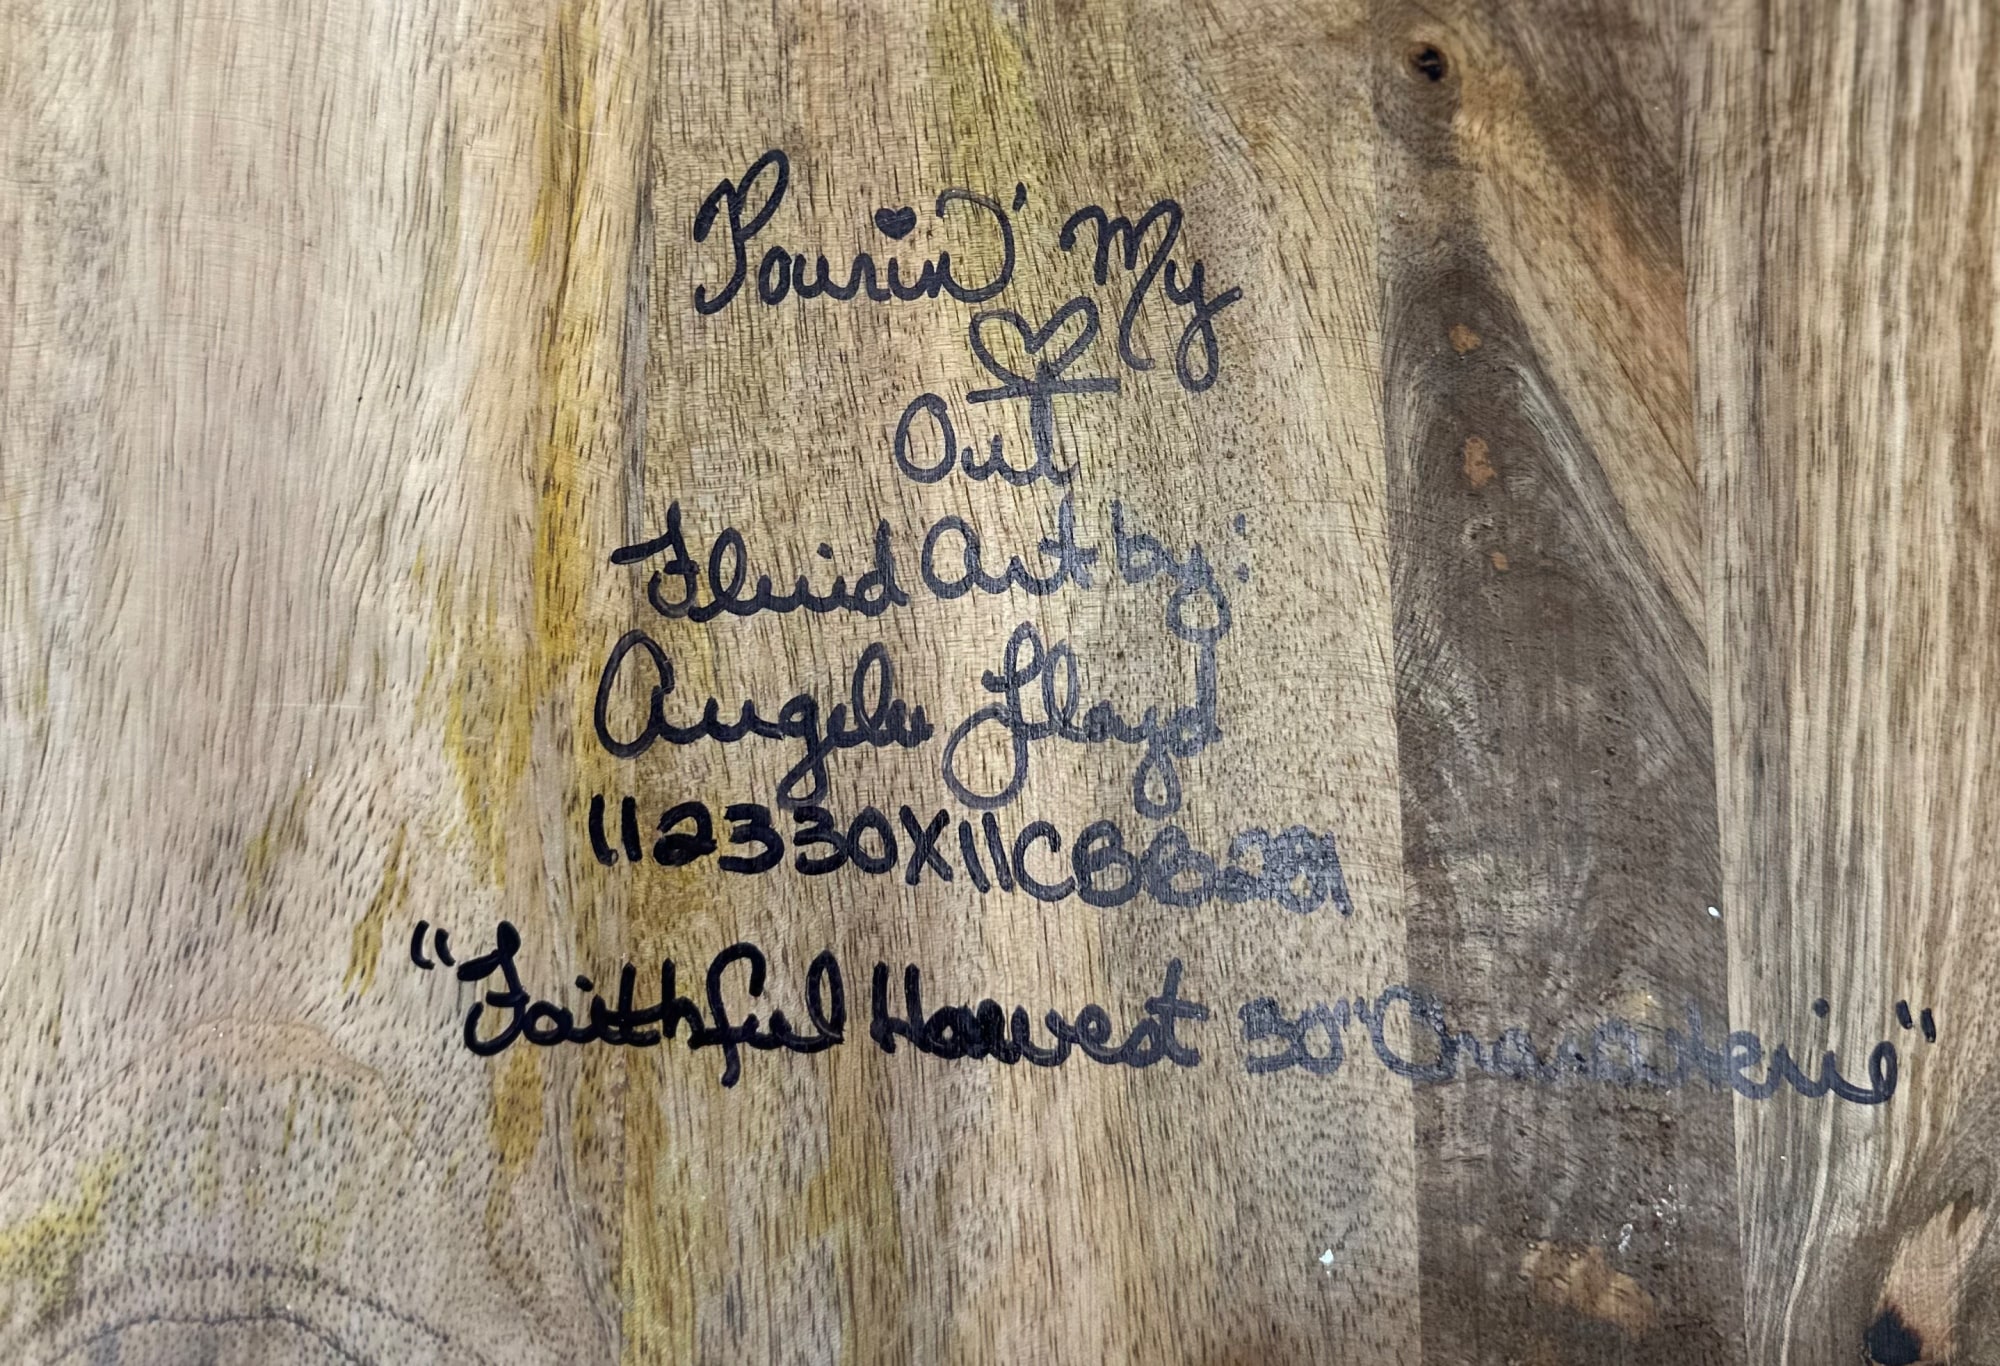 Pourin' My
♡
Out
Fluid Art by:
Angela Lloyd
"Faithful Harvest 30" Charcuterie"